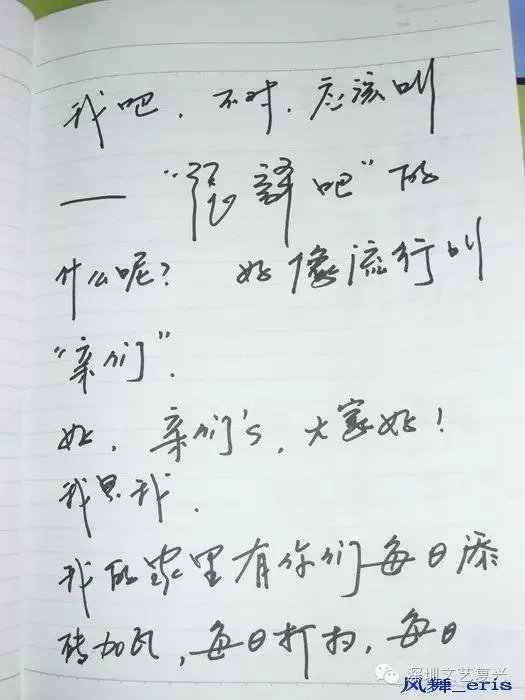 我吧，不对，应该叫
——“張譯吧”的
什么呢？ 好像流行叫
“亲们”.
好，亲们's，大家好！
我是我.
我的家里有你们每日添
砖加瓦，每日打扫，每日
深圳文艺复兴
风舞 eris